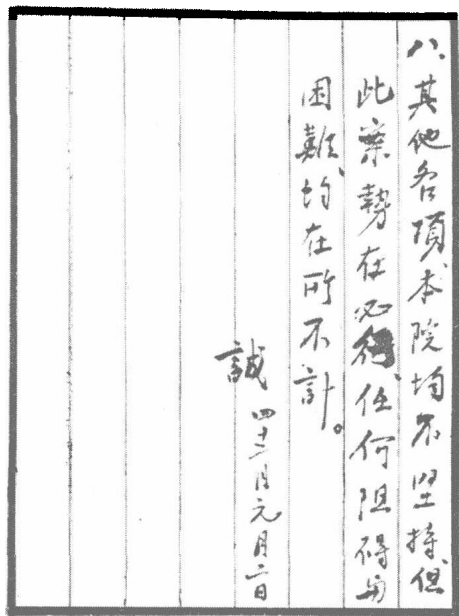 八、其他各項本院均不堅持但
此案勢在必行、任何阻碍与
困難、均在所不計。
誠 四十二年元月二日